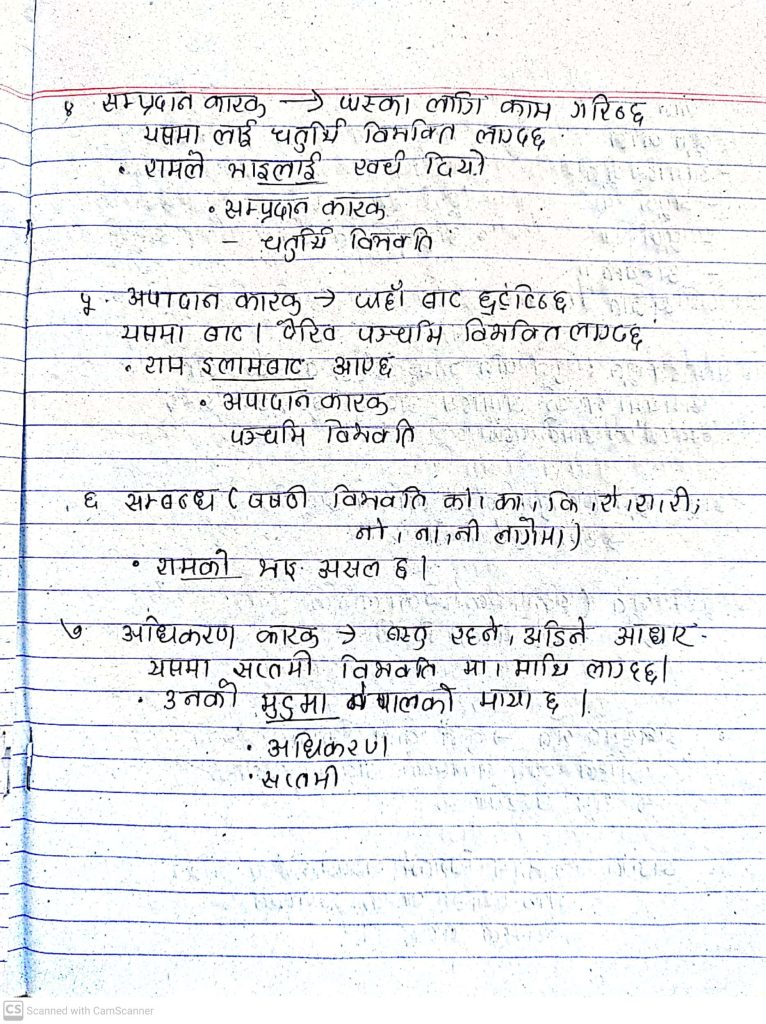 ४ सम्प्रदान कारक → जसका लागि काम गरिन्छ
यसमा लाई चतुर्थि विभक्ति लाग्दछ
• रामले भाइलाई खर्च दियो
• सम्प्रदान कारक
- चतुर्थि विभक्ति
५. अपादान कारक → जहाँ बाट छुट्टिन्छ
यसमा बाट। देखि पञ्चमि विभक्ति लाग्दछ
• राम इलामबाट आएछ
• अपादान कारक
पञ्चमि विभक्ति
६ सम्बन्ध ( षष्ठी विभक्ति को, का, कि, रो, रा, री,
नो, ना, नी लगेमा)
• रामको भाइ असल छ।
७ अधिकरण कारक → वस्तु रहने, अडिने आधार
यसमा सप्तमी विभक्ति मा। माथि लाग्दछ।
• उनको मुटुमा नेपालको माया छ ।
• अधिकरण
• सप्तमी
CS Scanned with CamScanner